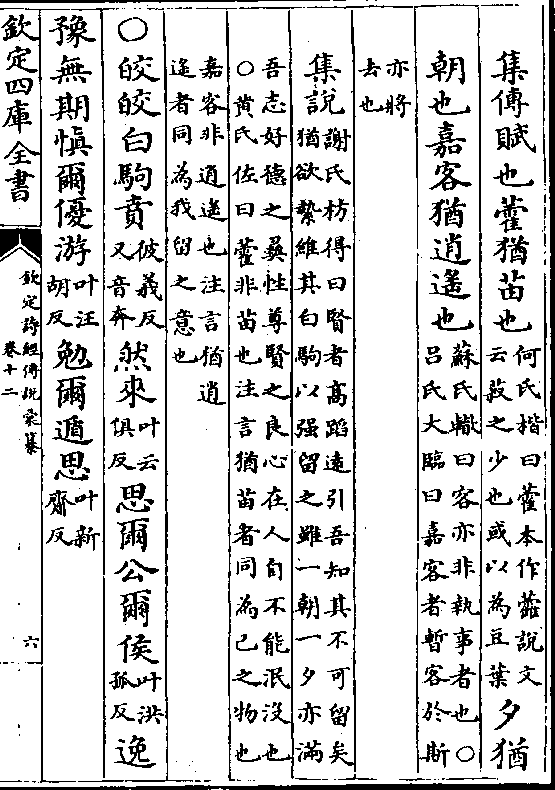 集傳賦也藿猶苖也何氏楷曰藿本作䕌說文云菽之少也或以為豆葉夕猶
朝也嘉客猶逍遙也蘇氏轍曰客亦非執事者也○呂氏大臨曰嘉客者暫客於斯
亦將去也
集說謝氏枋得曰賢者高蹈遠引吾知其不可留矣猶欲縶維其白駒以强留之雖一朝一夕亦滿
吾志好德之彞性尊賢之良心在人自不能泯没也○黄氏佐曰藿非苖也注言猶苖者同為已之物也
嘉客非逍遙也注言猶逍遙者同為我留之意也
○皎皎白駒賁彼義反又音奔然來叶云俱反思爾公爾侯叶洪孤反逸
豫無期慎爾優游叶汪胡反勉爾遁思叶新齎反
欽定四庫全書
欽定詩經傳說彙纂
卷十二
六